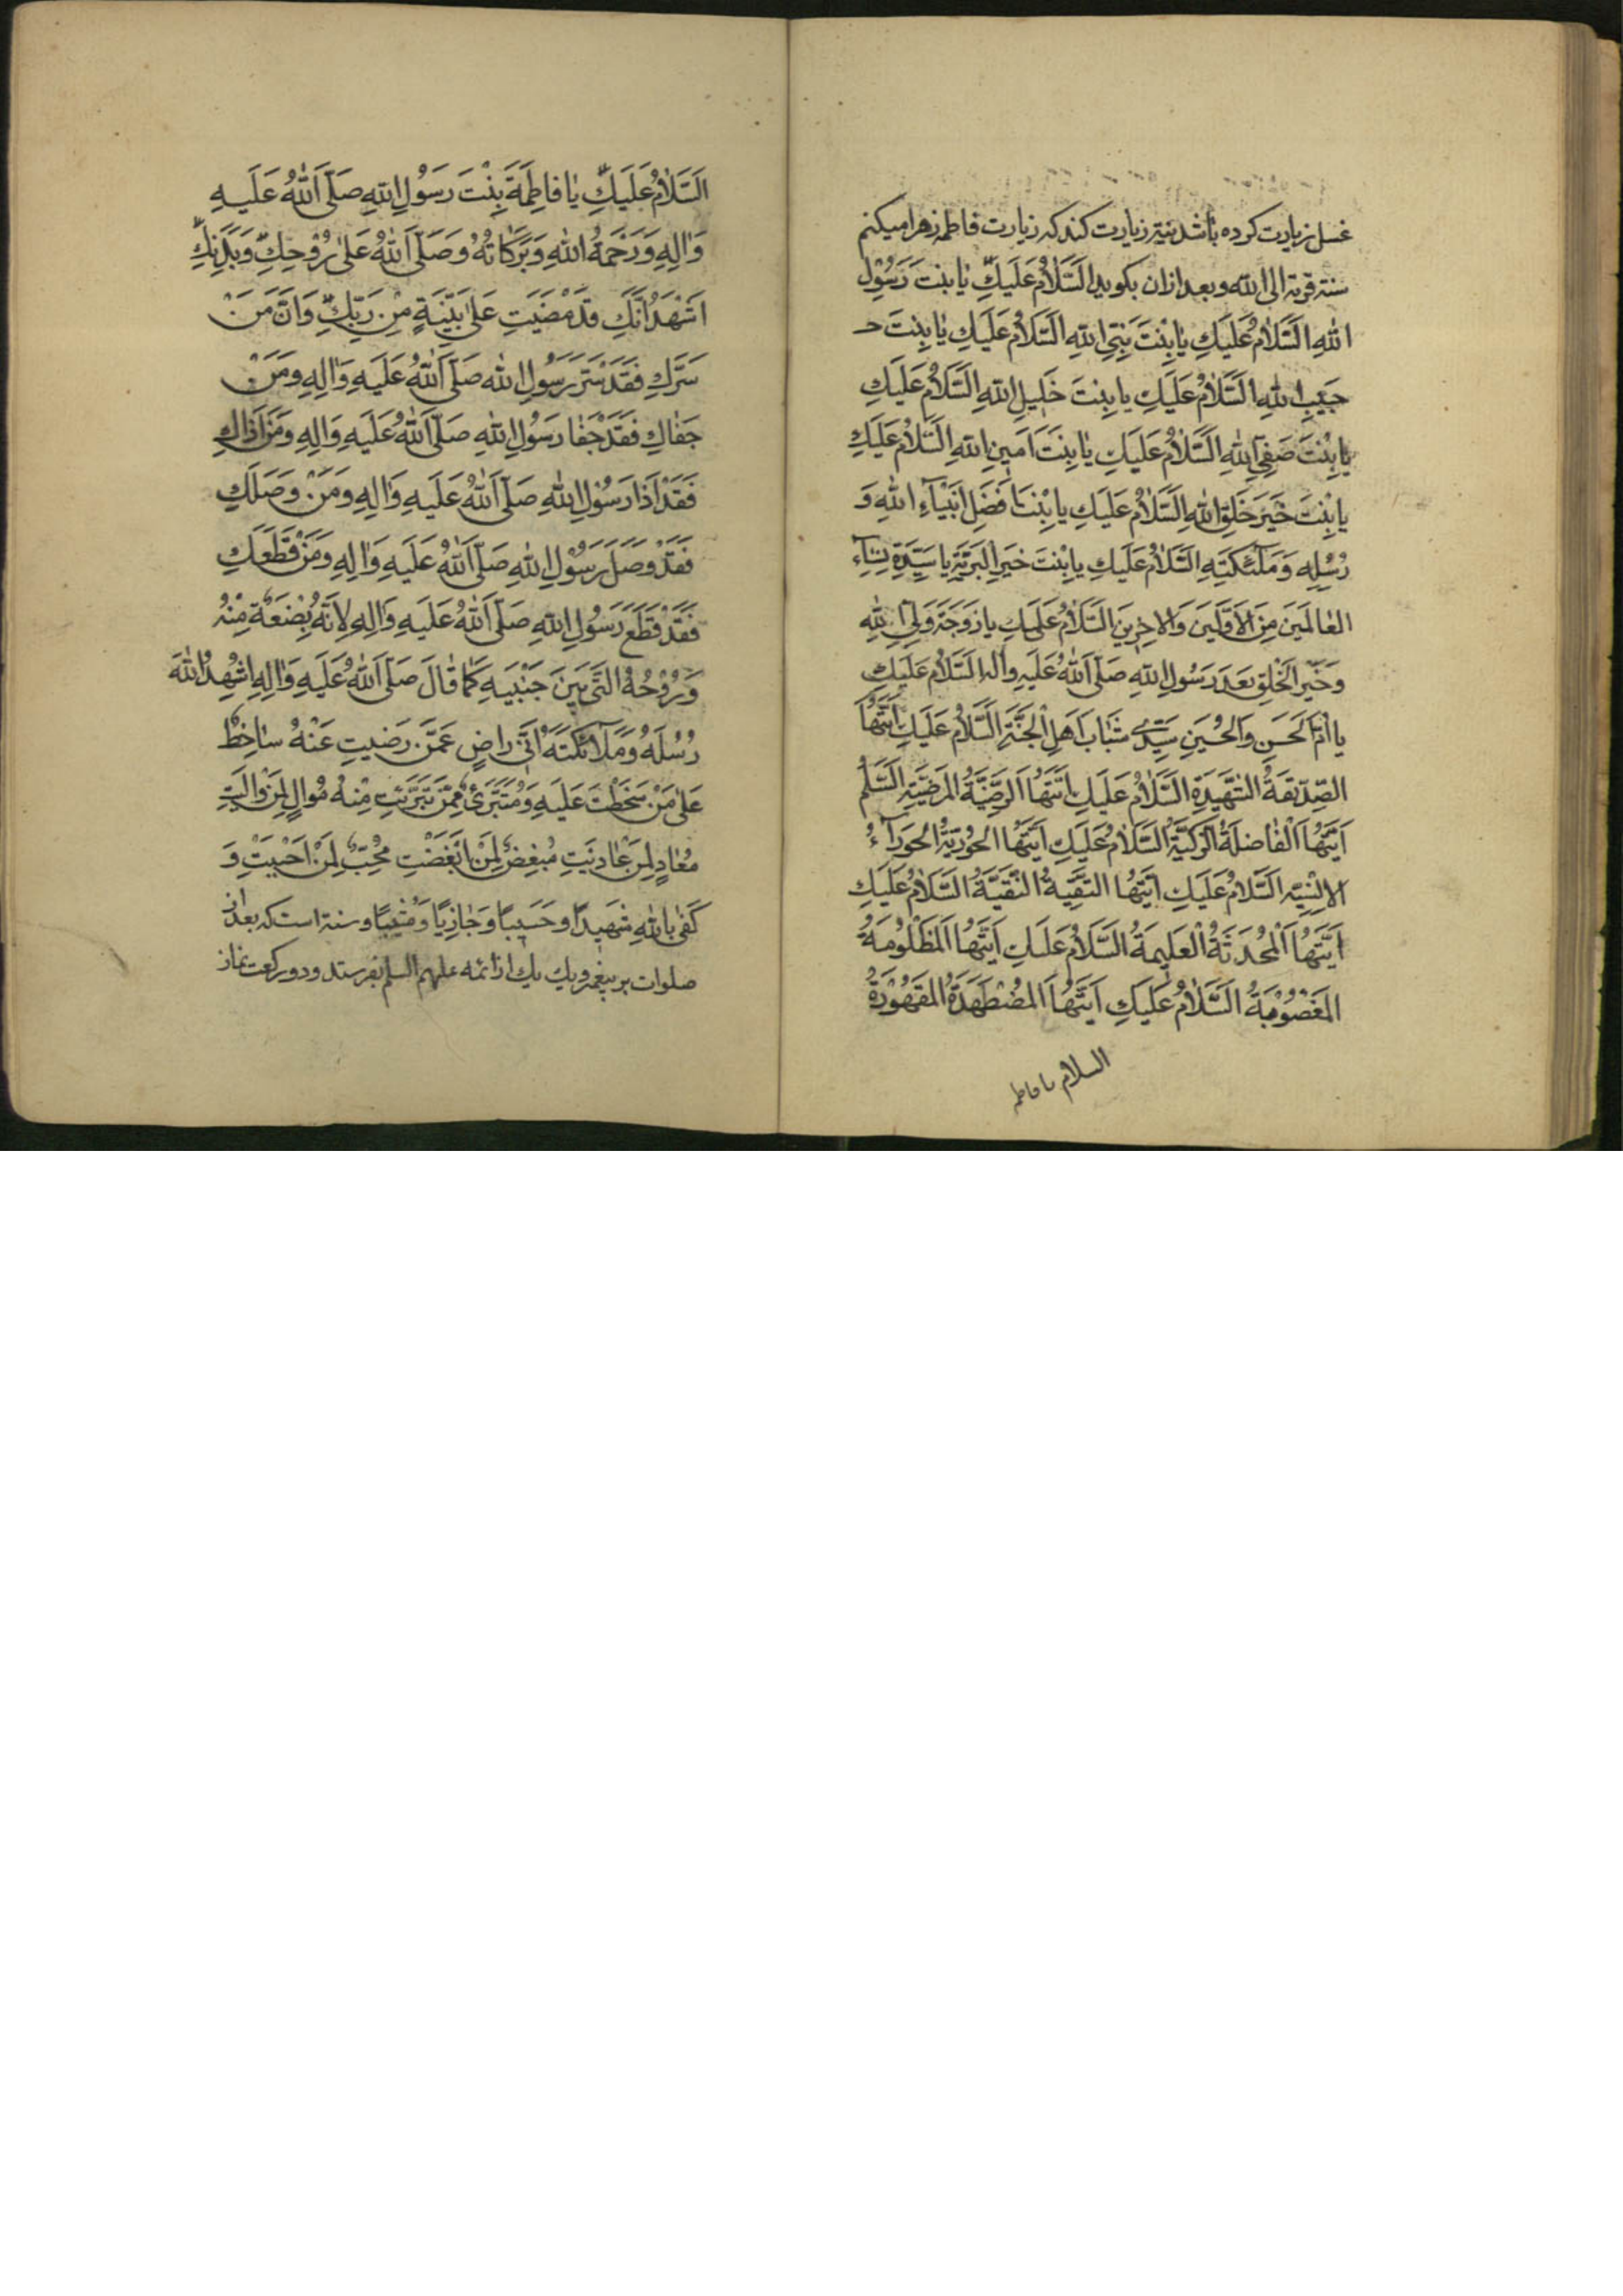 غسل زیارت کرده باشد نیتر زیارت کند که زیارت فاطمه زهرا میکنم
سنة قربة الی الله و بعد ازان بکوید اَلسَّلَامُ عَلَيْكِ يَا بِنْتَ رَسُوْلِ
اللهِ اَلسَّلَامُ عَلَيْكِ يَا بِنْتَ نَبِيِّ اللهِ اَلسَّلَامُ عَلَيْكِ يَا بِنْتَ حـ
حَبِيْبِ اللهِ اَلسَّلَامُ عَلَيْكِ يا بِنْتَ خَلِيلِ اللهِ اَلسَّلَامُ عَلَيْكِ
يَا بِنْتَ صَفِيِّ اللهِ اَلسَّلَامُ عَلَيْكِ يَا بِنْتَ اَمِينِ اللهِ اَلسَّلَامُ عَلَيْكِ
يا بِنْتَ خَيْرِ خَلْقِ اللهِ اَلسَّلَامُ عَلَيْكِ يا بِنْتَ اَفْضَلِ اَنْبِيَآءِ اللهِ وَ
رُسُلِهِ وَمَلٰئِكَتِهِ اَلسَّلَامُ عَلَيْكِ يا بِنْتَ خَيْرِ الْبَرِيَّةِ يا سَيِّدَةِ نِسَآءِ
الْعَالَمِيْنَ مِنَ الْاَوَّلِيْنَ وَالْاٰخِرِينَ اَلسَّلَامُ عَلَيْكِ يا زَوْجَةَ وَلِيِّ اللهِ
وَخَيْرِ الْخَلْقِ بَعْدَ رَسُولِ اللهِ صَلَّى اللهُ عَلَيْهِ وَاٰلِهِ اَلسَّلَامُ عَلَيْكِ
يا اُمَّ الْحَسَنِ وَالْحُسَيْنِ سَيِّدَيْ شَبَابِ اَهْلِ الْجَنَّةِ اَلسَّلَامُ عَلَيْكِ اَيَّتُهَا
الصِّدّيقَةُ الشَّهِيدَةِ اَلسَّلَامُ عَلَيْكِ اَيَّتُهَا الرَّضِيَّةُ الْمَرْضِيَّةِ اَلسَّلَمُ
اَيَّتُهَا الْفَاضِلَةُ الزَّكِيَّةُ اَلسَّلَامُ عَلَيْكِ اَيَّتُهَا الْحُورِيَّةُ الْحَورَآءُ
الانْسِيَّه اَلسَّلَامُ عَلَيْكِ اَيَّتُهَا التَّقِيَّةُ النَّقِيَّةُ اَلسَّلَامُ عَلَيْكِ
اَيَّتُهَا الْمُحَدَّثَةُ الْعَلِيمَةُ السَّلَامُ عَلَيْكِ اَيَّتُهَا الْمَظْلُوْمَةُ
الْمَغْصُوْبَةُ السَّلَامُ عَلَيْكِ اَيَّتُهَا الْمُضْطَهَدَةُ الْمَقْهُوْرَةُ
السلام یا فاطمه
اَلسَّلَامُ عَلَيْكِ يَا فَاطِمَةَ بِنْتَ رَسُوْلِ اللهِ صَلَّى اللهُ عَلَيْهِ
وَاٰلِهِ وَرَحْمَةُ اللهِ وَبَرَكَاتُهُ وَصَلَّى اللهُ عَلىٰ رُوْحِكِ وَبَدَنِكِ
اَشْهَدُ اَنَّكِ قَدْ مَضَيْتِ عَلىٰ بَيِّنَةٍ مِنْ رَبِّكِ وَاَنَّ مَنْ
سَرَّكِ فَقَدْ سَرَّ رَسُولَ الله صَلَّى اللهُ عَلَيْهِ وَاٰلِهِ وَمَنْ
جَفَاكِ فَقَدْ جَفَا رَسُوْلَ اللهِ صَلَّى اللهُ عَلَيْهِ وَاٰلِهِ وَمَنْ اٰذَاكِ
فَقَدْ اَذَا رَسُوْلَ اللهِ صَلَّى اللهُ عَلَيْهِ وَاٰلِهِ وَمَنْ وَصَلَكِ
فَقَدْ وَصَلَ رَسُوْلَ اللهِ صَلَّى اللهُ عَلَيْهِ وَاٰلِهِ وَمَنْ قَطَعَكِ
فَقَدْ قَطَعَ رَسُوْلَ اللهِ صَلَّى اللهُ عَلَيْهِ وَاٰلِهِ لِاَنَّهُ بِضْعَةٌ مِنْهُ
وَرُوْحُهُ الَّتِى بَيْنَ جَنْبَيْهِ كَمَا قَالَ صَلَّى اللهُ عَلَيْهِ وَاٰلِهِ اُشْهِدُ اللهَ
رُسُلَهُ وَمَلَآئِكَتَهُ اَنِّى رَاضٍ عَمَّنْ رَضيتِ عَنْهُ سَاخِطٌ
عَلىٰ مَنْ سَخِطْتِ عَلَيْهِ وَمُتَبَرِّئٌ مِمَّنْ تَبَرَّئْتِ مِنْهُ مُوَالٍ لِمَنْ وَالَيْتِ
مُعَادٍ لِمَنْ عَادَيْتِ مُبْغِضٌ لِمَنْ اَبْغَضْتِ مُحِبٌّ لِمَنْ اَحْبَبْتِ وَ
كَفٰى بِاللهِ شَهِيْدًا وَحَسِيْبًا وَجَازِيًا وَمُثِيْبًا و سنة است که بعد از
صلوات بر پیغمبر و یك یك از ائمه علیهم السلم بفرستد و دو رکعت نماز